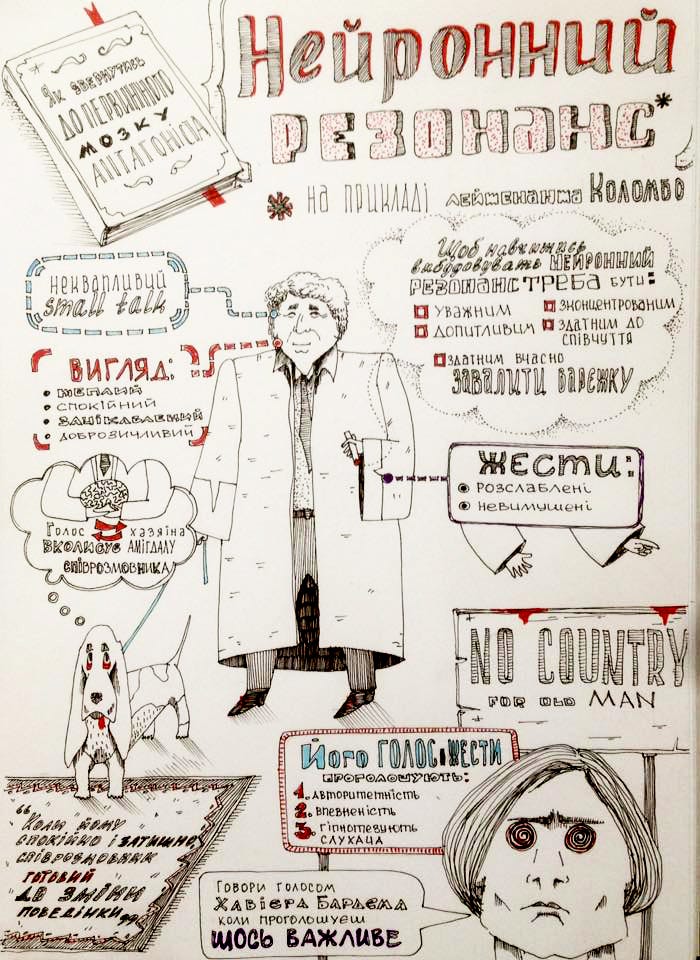 Як звернутись
до первинного
мозку
антагоніста
Нейронний
резонанс*
* на прикладі лейтенанта Коломбо
Неквапливий
small talk
Вигляд:
• теплий
• спокійний
• зацікавлений
• доброзичливий
Щоб навчитись
вибудовувать нейронний
резонанс треба бути:
уважним
допитливим
зконцентрованим
здатним до
співчуття
здатним вчасно
завалити варежку
Жести:
Розслаблені
Невимушені
Голос хазяїна
вколисує амігдалу
співрозмовника
NO COUNTRY
FOR OLD MAN
Його голос і жести
проголошують:
1. авторитетність
2. впевненість
3. гіпнотезують
слухача
“Коли йому
спокійно і затишно,
співрозмовник
готовий
до зміни
поведінки”
Говори голосом
Хавієра Бардема
коли проголошуєш
щось важливе